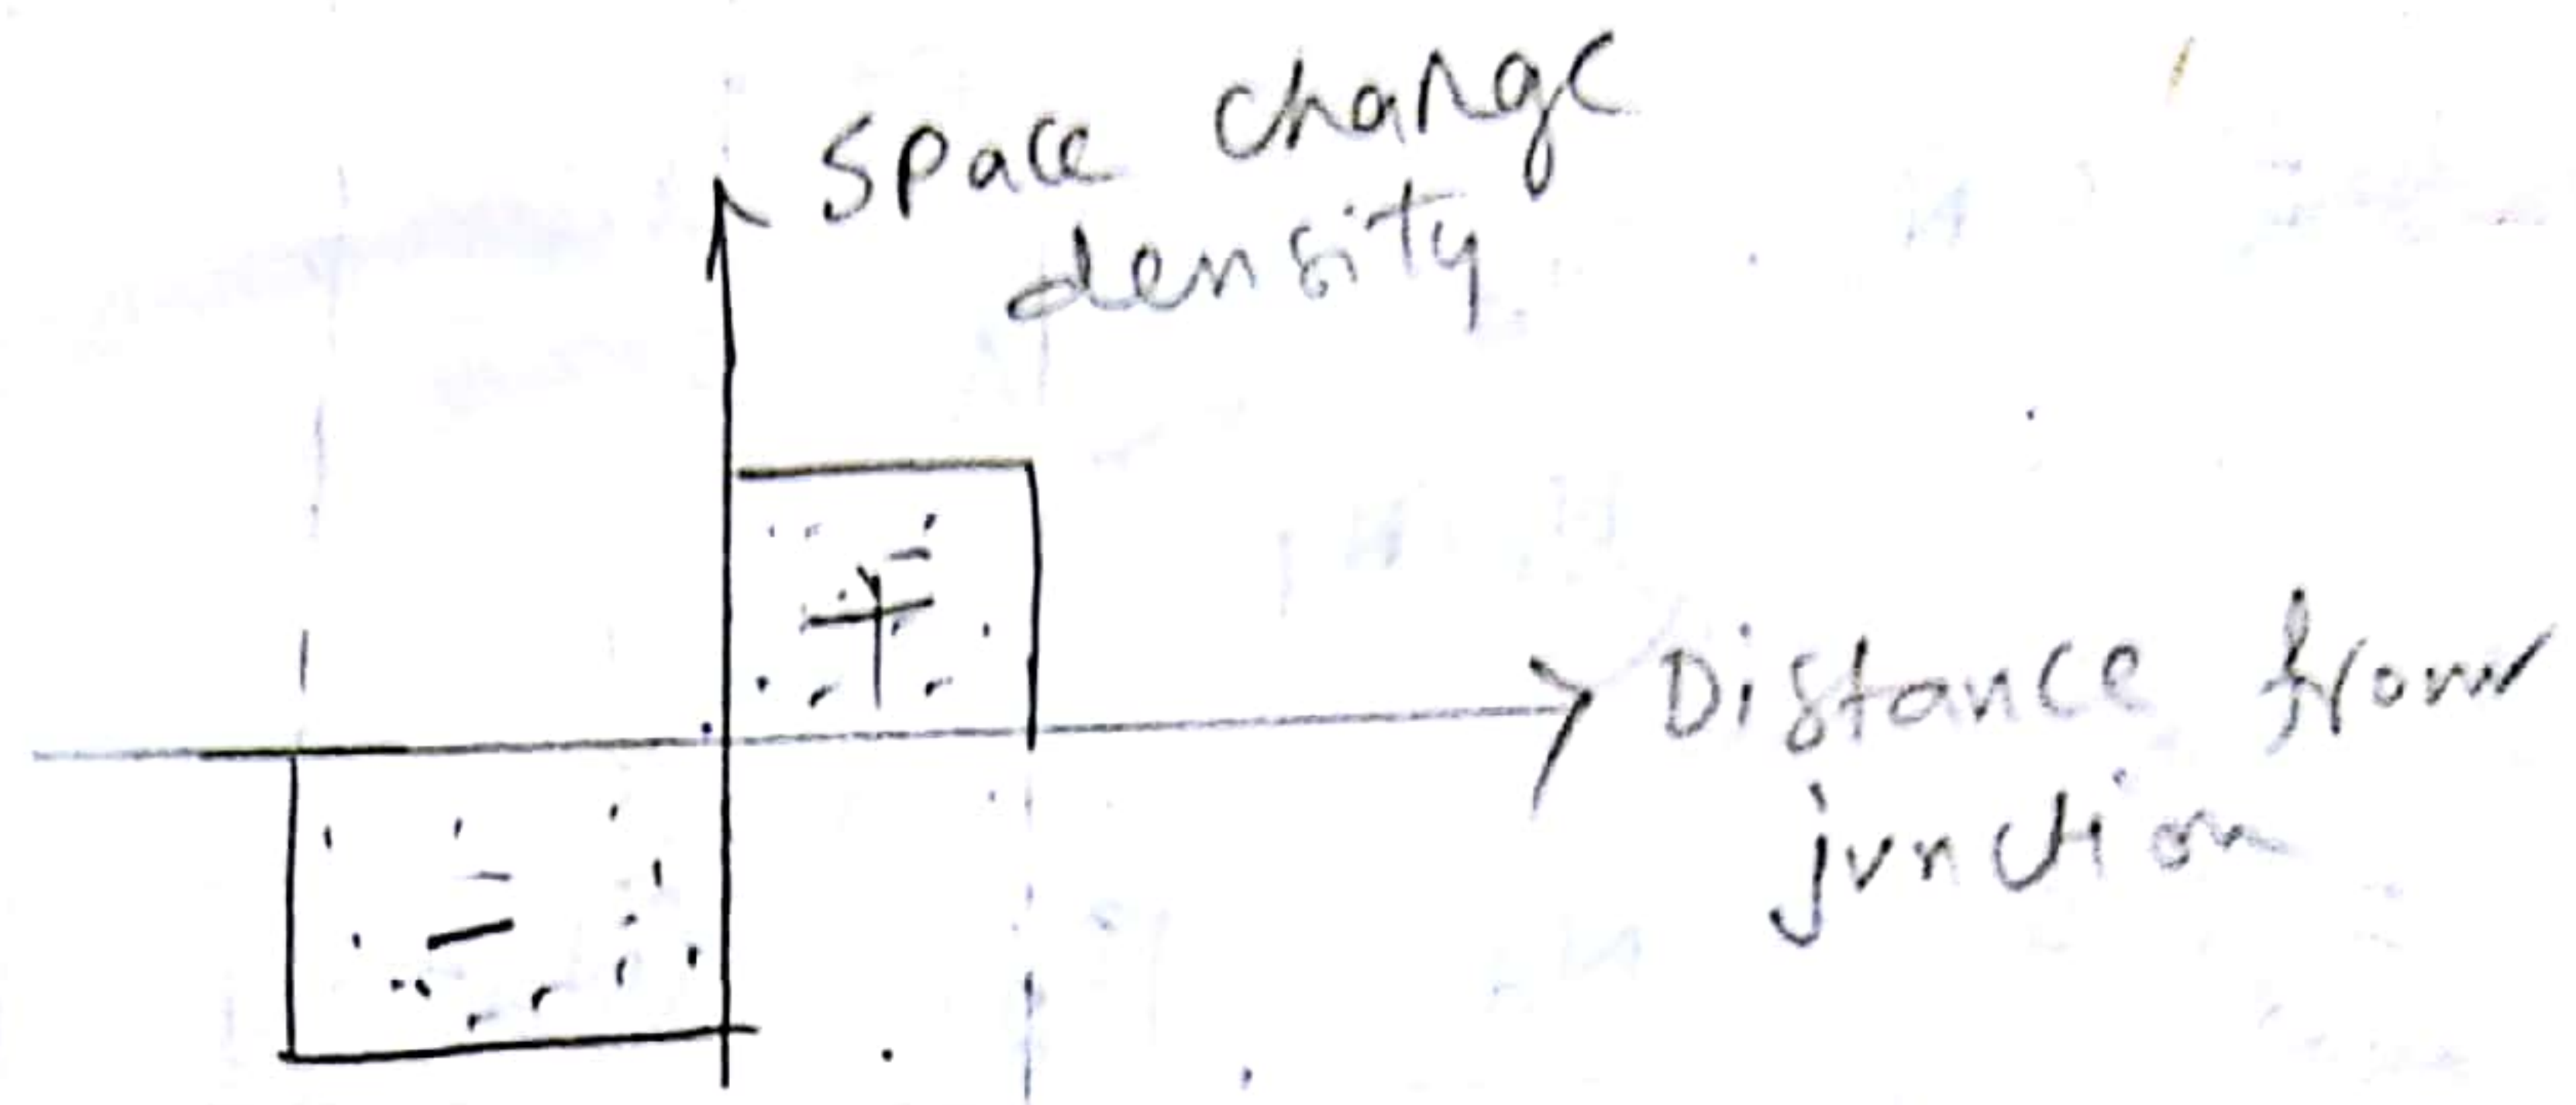 Space charge
density
+
Distance from
junction
-